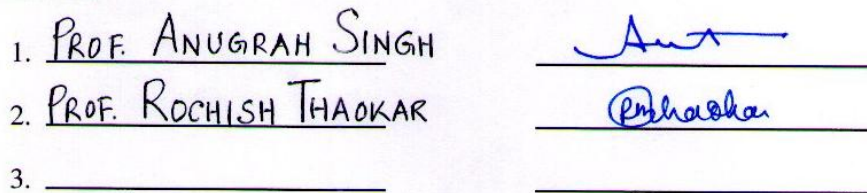 1. PROF. ANUGRAH SINGH
2. PROF. ROCHISH THAOKAR
3.